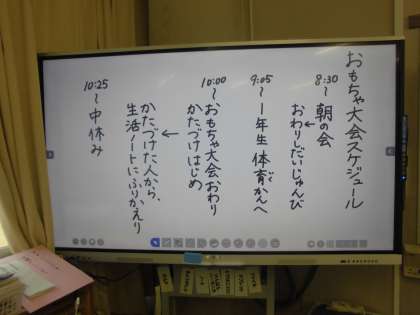 おもちゃ大会スケジュール
8:30
～朝の会
↓
おわりしだいじゅんび
9:05
～1年生体育かんへ
10:00
～おもちゃ大会おわり
かたづけはじめ
↓
かたづけた人から、
生活ノートにふりかえり
10:25
～中休み